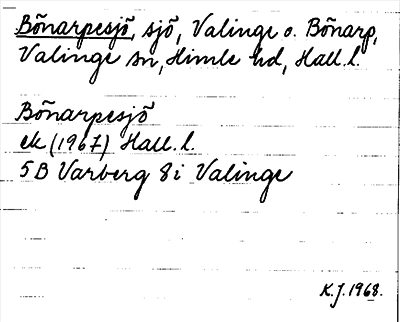 Bönarpesjö, sjö, Valinge o. Bönarp,
Valinge sn, Himle hd, Hall. l.
Bönarpesjö
ek. (1967) Hall. l.
5B Varberg 8i Valinge
K.J. 1968.